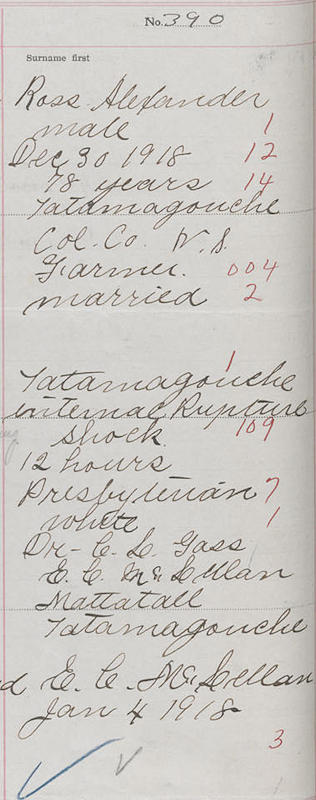 No. 390
Surname first
Ross Alexander
male 1
Dec 30 1918 12
78 years 14
Tatamagouche
Col. Co. N.S.
Farmer. 004
married 2
1
Tatamagouche
internal Rupture
shock 109
12 hours
Presbyterian 7
white 1
Dr - C. L. Gass
E. C. McLellan
Mattatall
Tatamagouche
d E. C. McLellan
Jan 4 1918
3